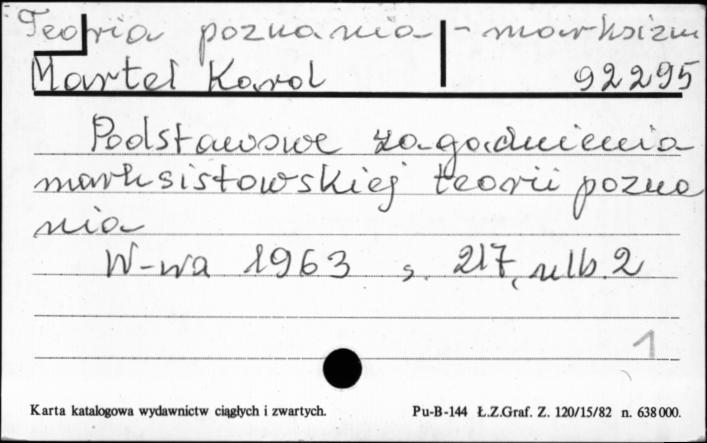 Teoria poznania - marksizm
Martel Karol 92295
Podstawowe zagadnienia
marksistowskiej teorii pozna
nia
W-wa 1963 s. 217, nlb. 2
1
Karta katalogowa wydawnictw ciągłych i zwartych. Pu-B-144 Ł.Z.Graf. Z. 120/15/82 n. 638000.